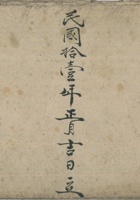 民國拾壹年正月吉日立